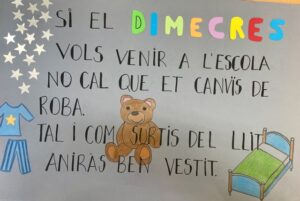 SI EL DIMECRES
VOLS VENIR A L'ESCOLA
NO CAL QUE ET CANVÏS DE
ROBA.
TAL I COM SURTIS DEL LLIT
ANIRÀS BEN VESTIT.